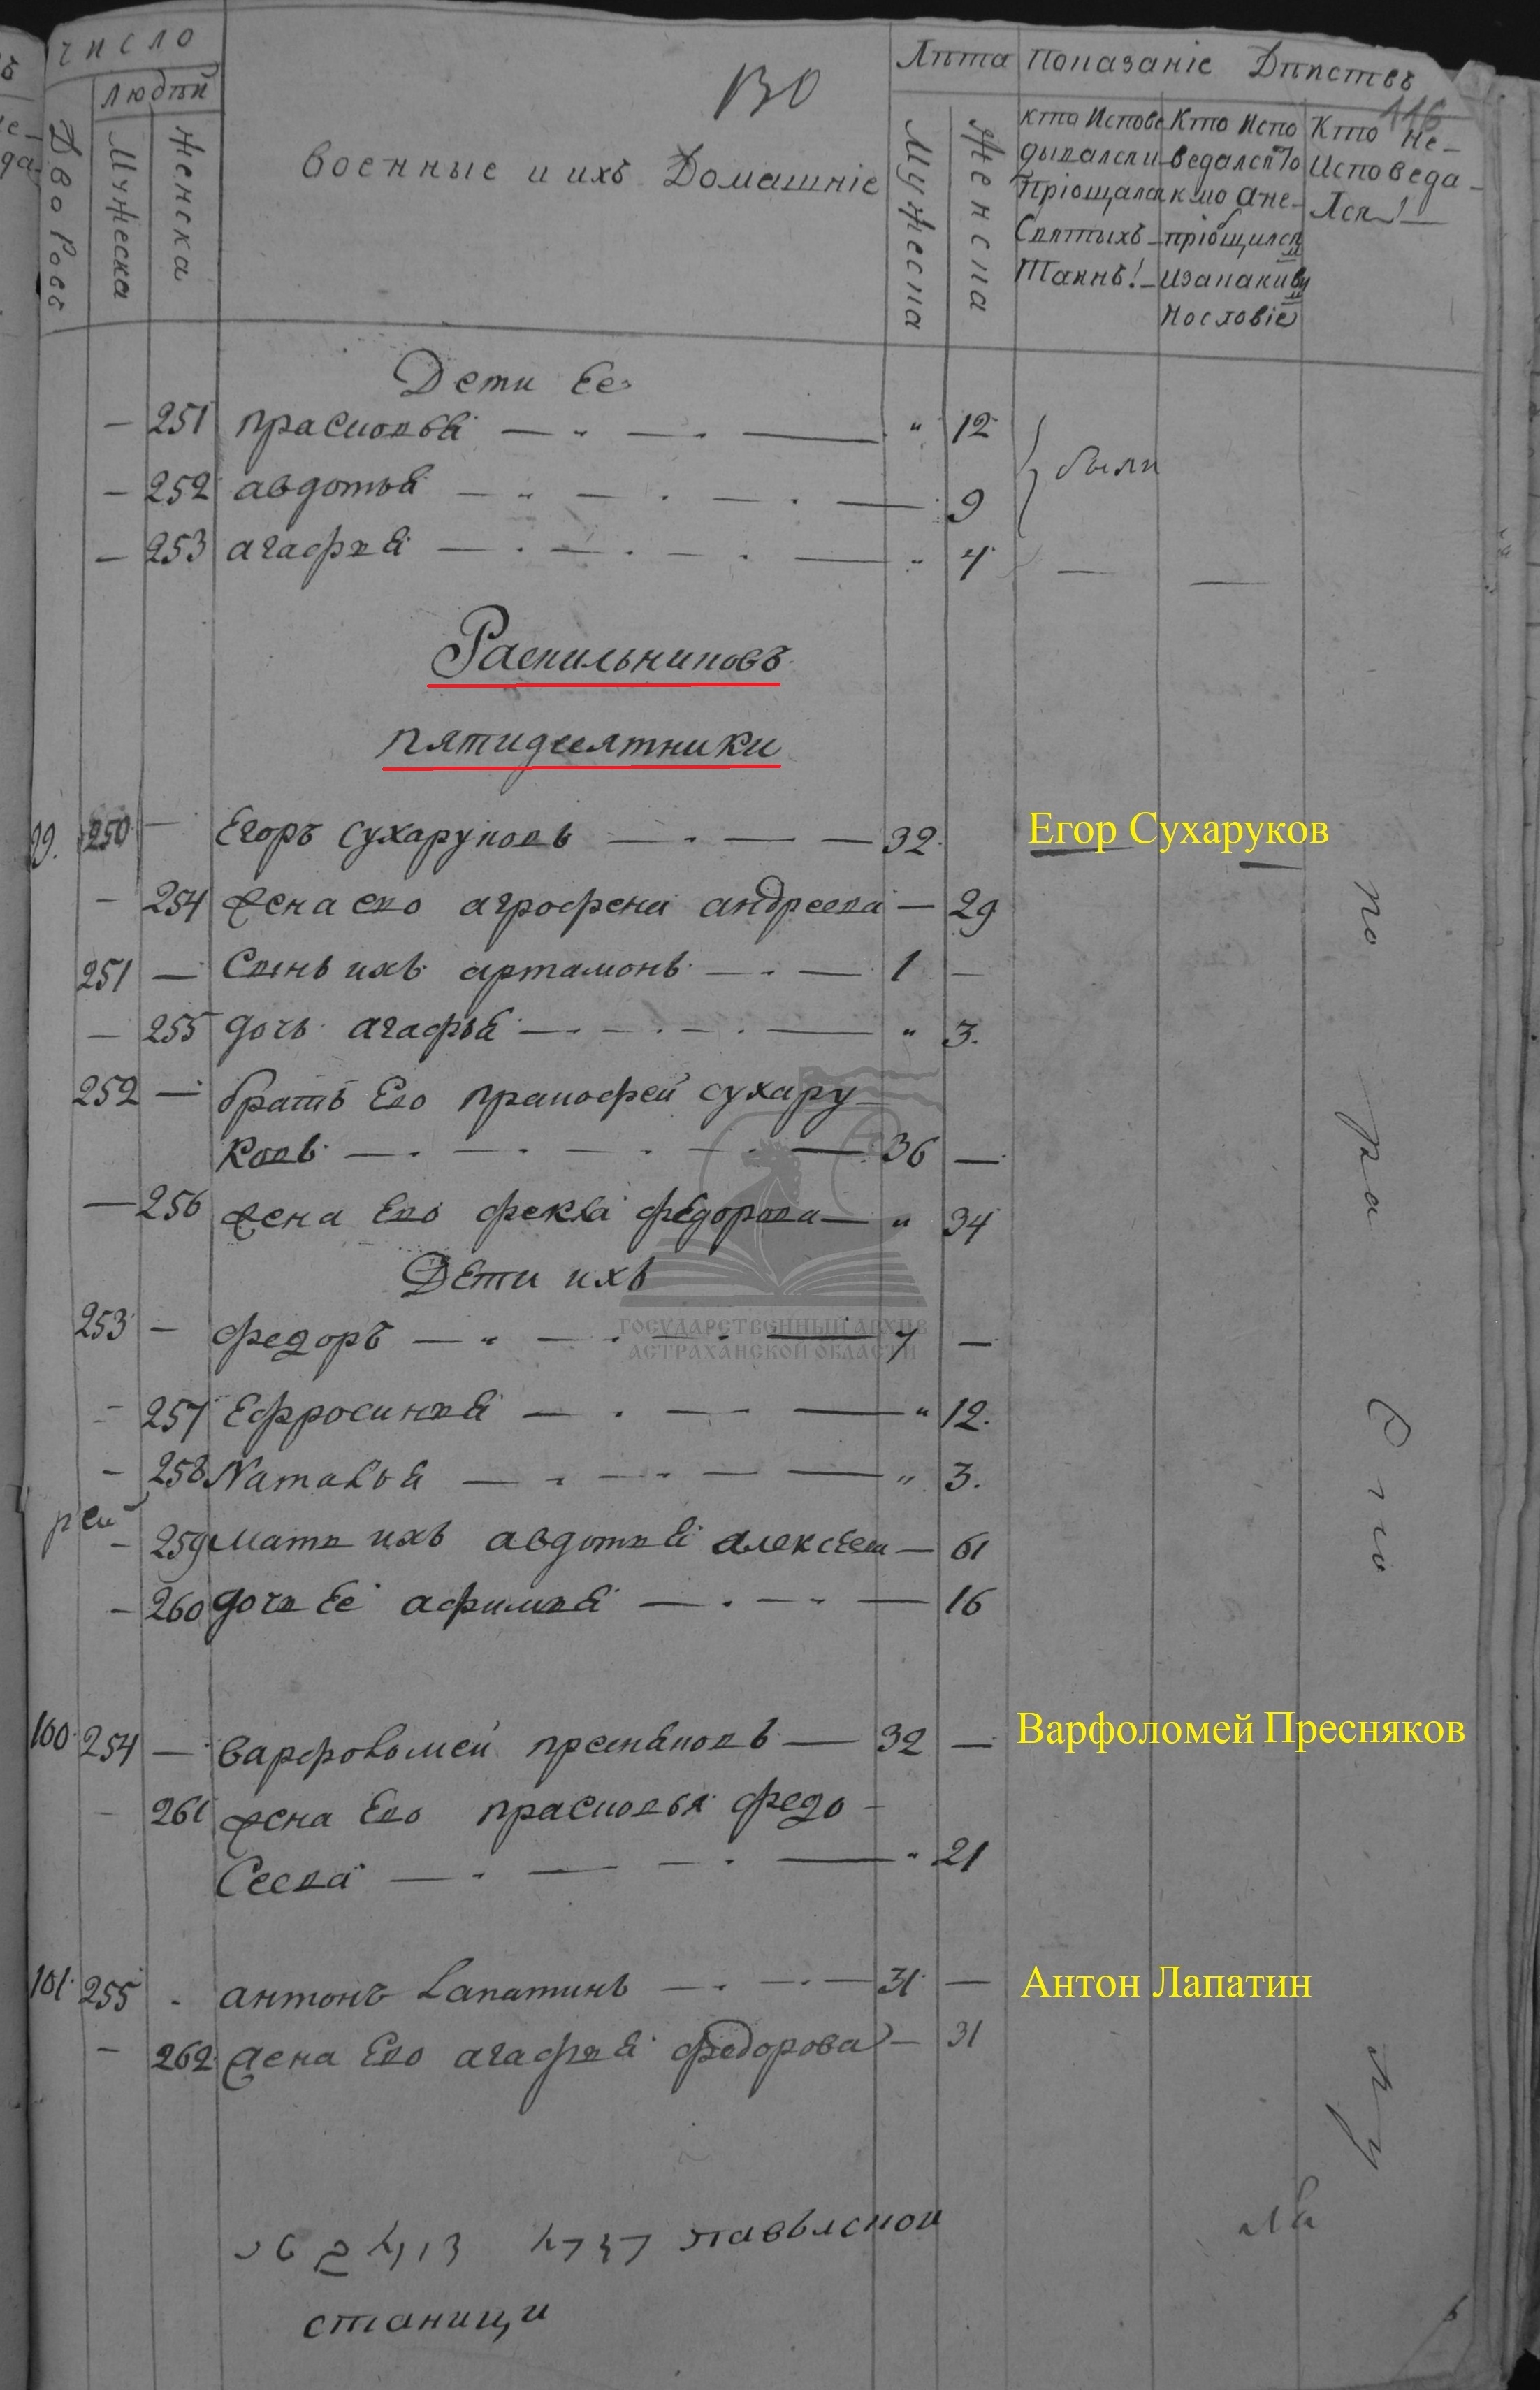 число
людей
Дворовъ
Мужеска
Женска
130
Военные и ихъ Домашніе
Лѣта
Мужеска
Женска
Показаніе Дѣйствъ
116
кто Испове
дывался и
Пріощался
Святыхъ
Таинъ!
Кто Испо
ведался То
кмо ане
пріобщился
изакаки ви
нословіе
Кто Не-
исповеда-
лся!
Дети Ее
— 251 прасковья " 12
были
— 252 авдотья 9
— 253 агафья " 4
Раскильниковъ
пятидесятники
99. 250 — Егоръ Сухаруковъ 32
Егор Сухаруков
— 254 жена ево агрофена андреева — 29
251 — Сынъ ихъ артамонъ 1 —
— 255 дочь агафья " 3.
252 — братъ Ево пракофей сухару
ковъ 36 —
— 256 жена Ево фекла федорова " 34
Дети ихъ
253 — федоръ 7 —
ГОСУДАРСТВЕННЫЙ АРХИВ
АСТРАХАНСКОЙ ОБЛАСТИ
— 257 Ефросинья " 12.
— 258 Наталья " 3.
рей
— 259 мать ихъ авдотья алексеева — 61
— 260 дочь Ее афимья 16
100. 254 — варфоломей пресняковъ — 32 —
Варфоломей Пресняков
— 261 жена Ево прасковья федо
Сеева " 21
101. 255 антонъ Лапатинъ 31 —
Антон Лапатин
— 262 жена Ево агафья федорова — 31
по
ра
ску
станици